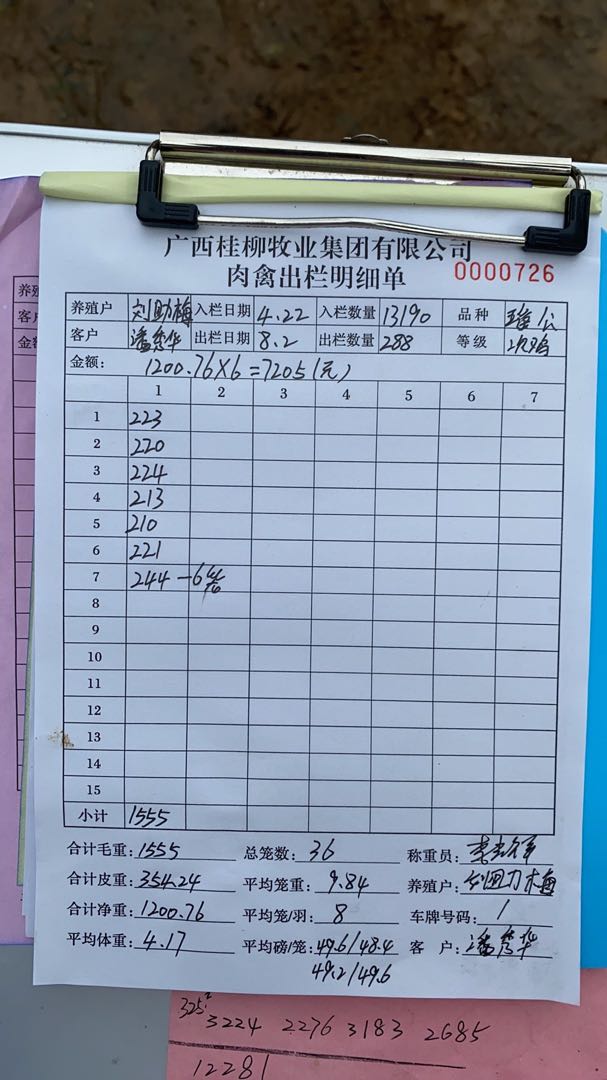 广西桂柳牧业集团有限公司
肉禽出栏明细单 0000726
养殖户 刘助梅 入栏日期 4.22 入栏数量 13190 品种 瑶公
客户 潘秀华 出栏日期 8.2 出栏数量 288 等级 次鸡
金额: 1200.76×6=7205(元)
1 2 3 4 5 6 7
1 223
2 220
3 224
4 213
5 210
6 221
7 244 —6笼
8
9
10
11
12
13
14
15
小计 1555
合计毛重: 1555 总笼数: 36 称重员:
合计皮重: 354.24 平均笼重: 9.84 养殖户:
合计净重: 1200.76 平均笼/羽: 8 车牌号码: 1
平均体重: 4.17 平均磅/笼: 49.6/48.4 客户: 潘秀华
49.2/49.6
养殖
客户
金额
325.²
3224 2276 3183 2685
12281